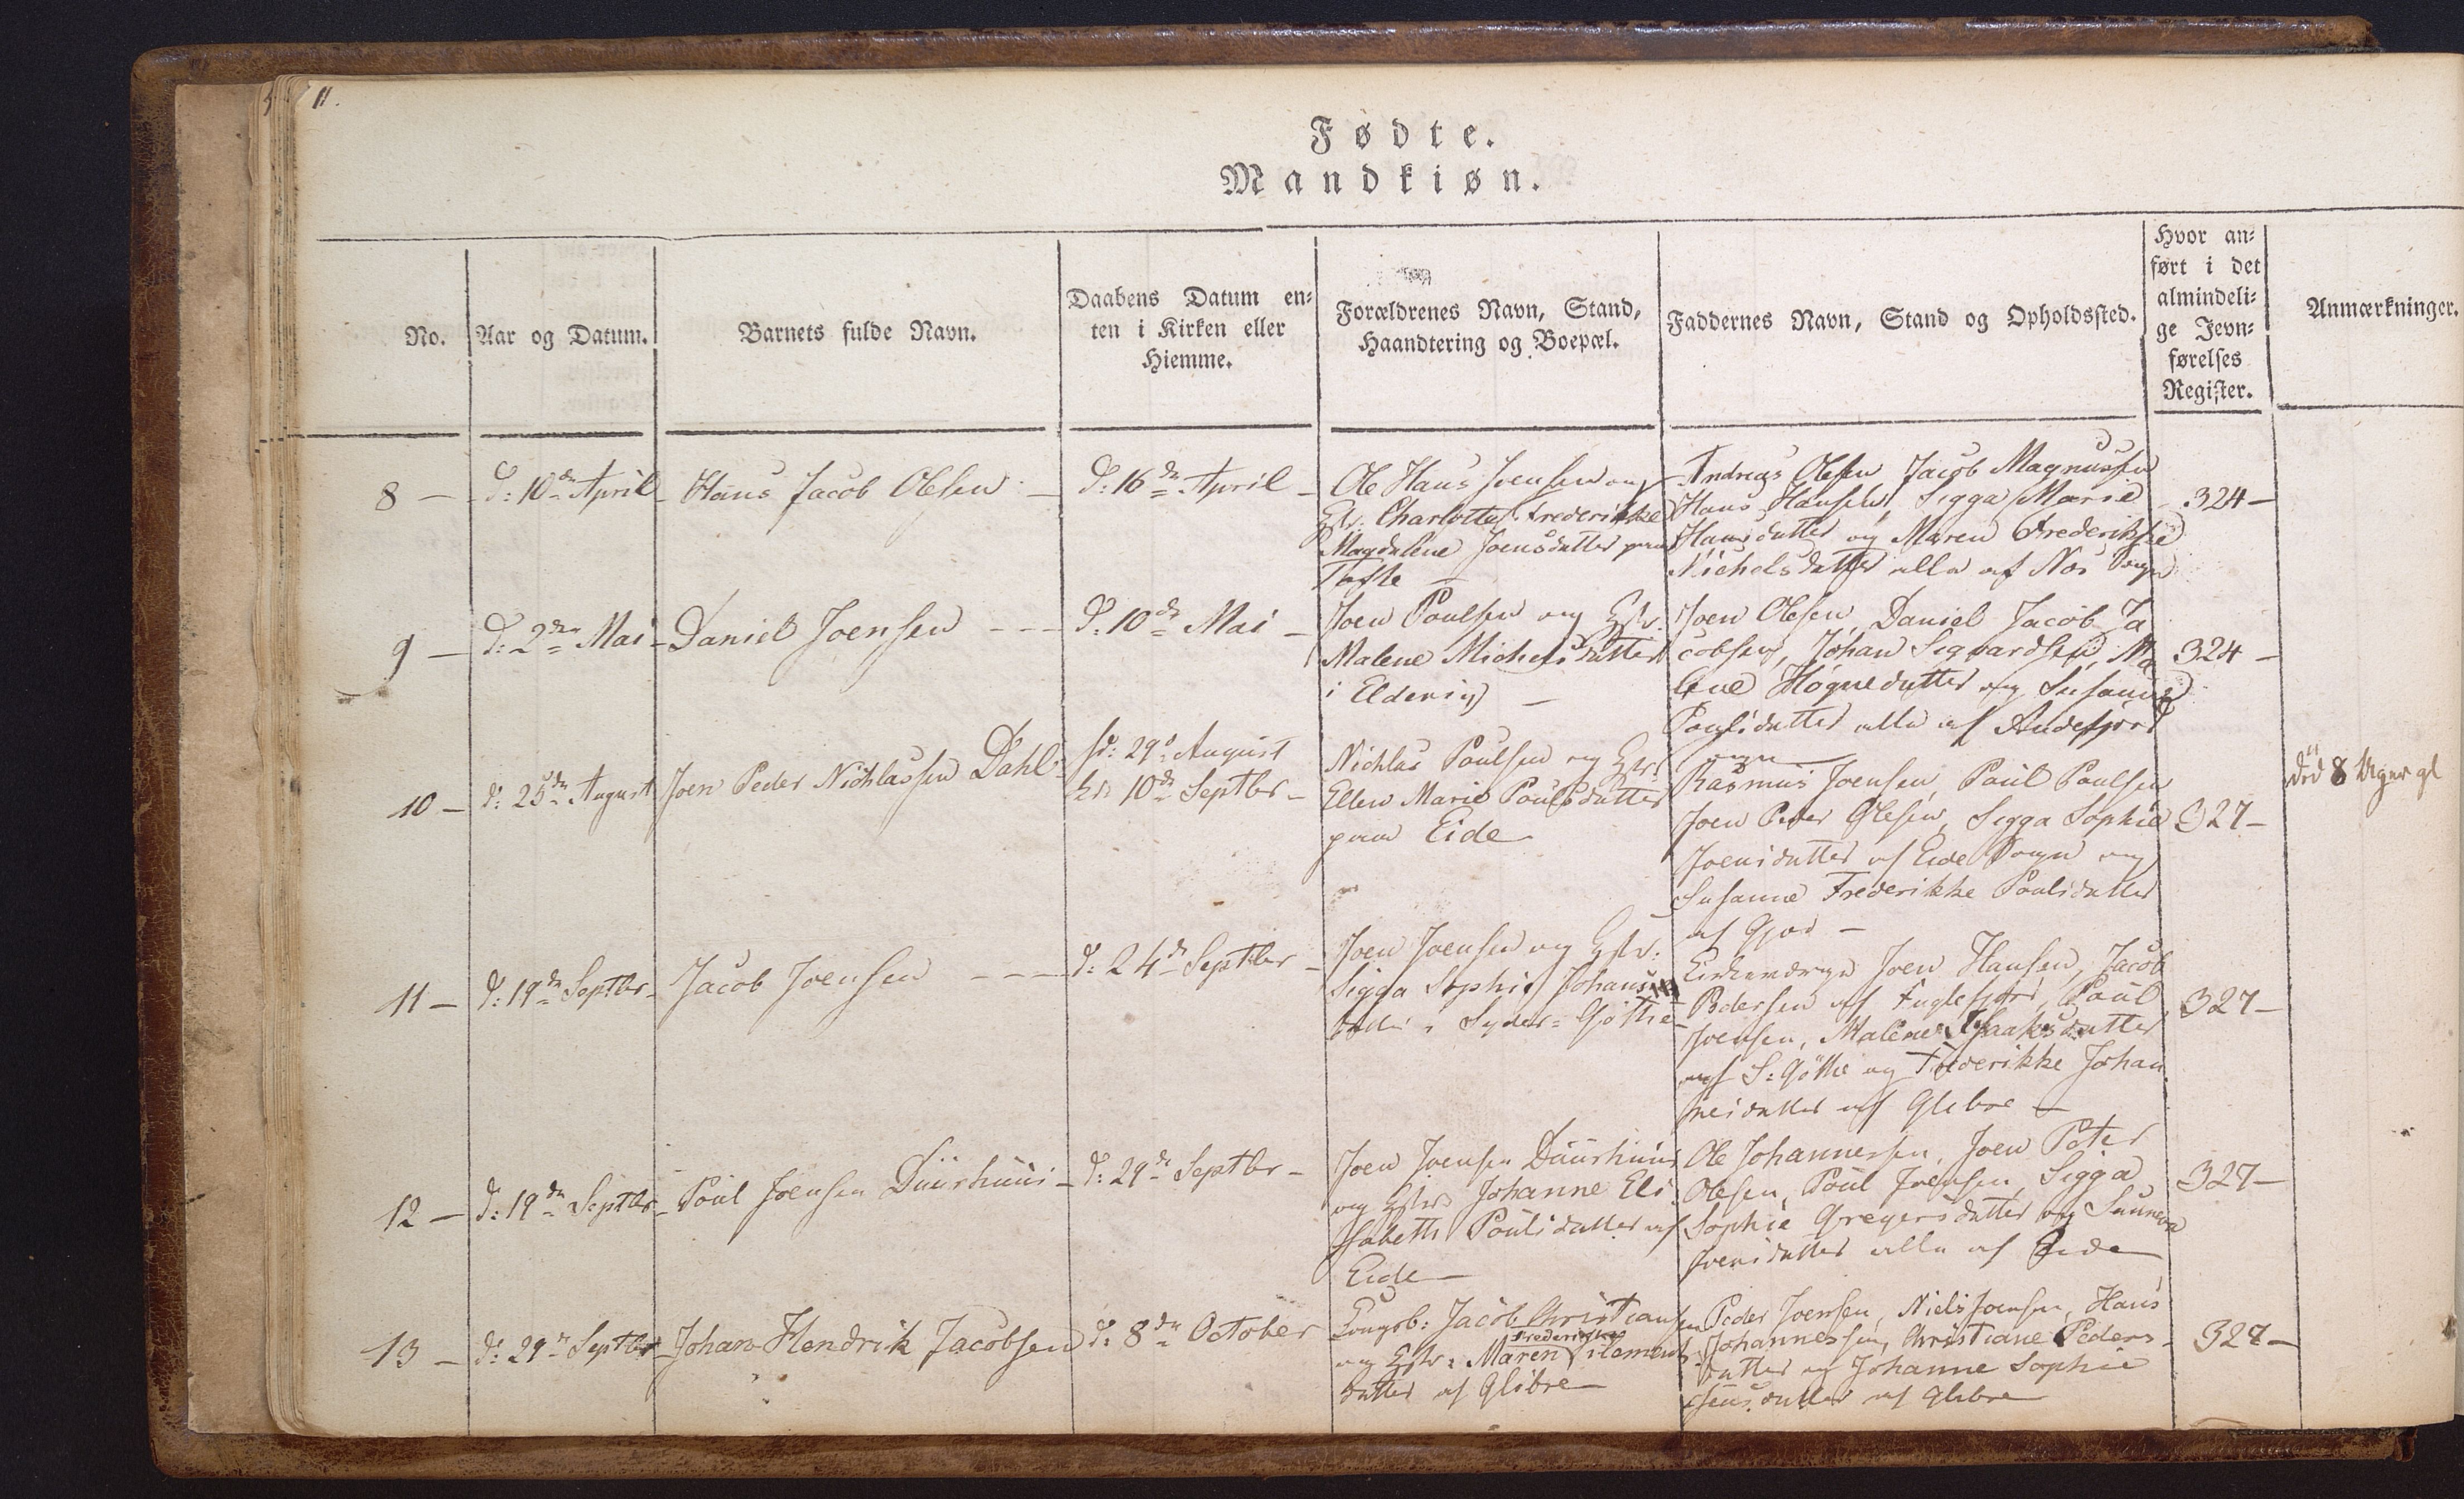 11.
Fødte.
Mandkiøn.
No.
Aar og Datum.
Barnets fulde Navn.
Daabens Datum en-
ten i Kirken eller
Hiemme.
Forældrenes Navn, Stand,
Haandtering og Boepæl.
Faddernes Navn, Stand og Opholdssted.
Hvor an-
ført i det
almindeli-
ge Jevn-
førelses
Register.
Anmærkninger.
8 —
d: 10de April
Hans Jacob Olesen —
d: 16de April —
Ole Hans Joensen og
Hstr: Charlotte Frederikke
Magdalene Joensdatter paa
Tofte —
Andreas Olesen Jacob Magnussen
Hans Hansen, Sigga Marie
Hansdatter og Maren Frederikke
Michelsdatter alle af Næs Sogn
324 —
9 —
d: 2den Mai —
Daniel Joensen - - -
d: 10de Mai —
Joen Poulsen og Hstr:
Malene Michelsdatter
i Eldevig —
Joen Olesen, Daniel Jacob Ja
cobsen, Johan Sigvardsen, Ma
lene Høgnedatter og Susanne
Poulsdatter alle af Andefjord
Sogn —
324 —
10 —
d: 25de August
Joen Peder Nichlassen Dahl
hd: 29de August
Kd: 10de Septbr —
Nichlas Poulsen og Hstr:
Ellen Marie Poulsdatter
paa Eide
Rasmus Joensen, Paul Poulsen
Joen Peder Olesen, Sigga Sophie
Joensdatter af Eide Sogn og
Susanne Frederikke Poulsdatter
af Gjov —
327 —
död 8 Uger gl
11 —
d: 19de Septbr —
Jacob Joensen - - -
d: 24de Septbr —
Joen Joensen og Hstr:
Sigga Sophie Johannes
datter i Syder-Gøthe —
Joen Hansen, Jacob
Pedersen af Fuglefjord, Poul
Joensen, Malene Isaksdatter
af S: Gøthe og Frederikke Johan
nesdatter af Glibre —
327 —
12 —
d: 19de Septbr —
Poul Joensen Duurhuus —
d: 29de Septbr —
Joen Joensen Duurhuus
og Hstr: Johanne Eli
sabeth Poulsdatter af
Eide —
Ole Johannessen, Joen Peter
Olesen, Poul Joensen, Sigga
Sophie Gregersdatter og Sunneva
Joensdatter alle af Eide
327 —
13 —
d: 29de Septbr —
Johan Hendrik Jacobsen
d: 8de October
Kongsb: Jacob Christiansen
Frederikke
og Hstr: Maren Clements
datter af Glibre —
Peder Joensen, Niels Joensen, Hans
Johannessen, Christiane Peders-
datter og Johanne Sophie
datter af Glibre
327 —